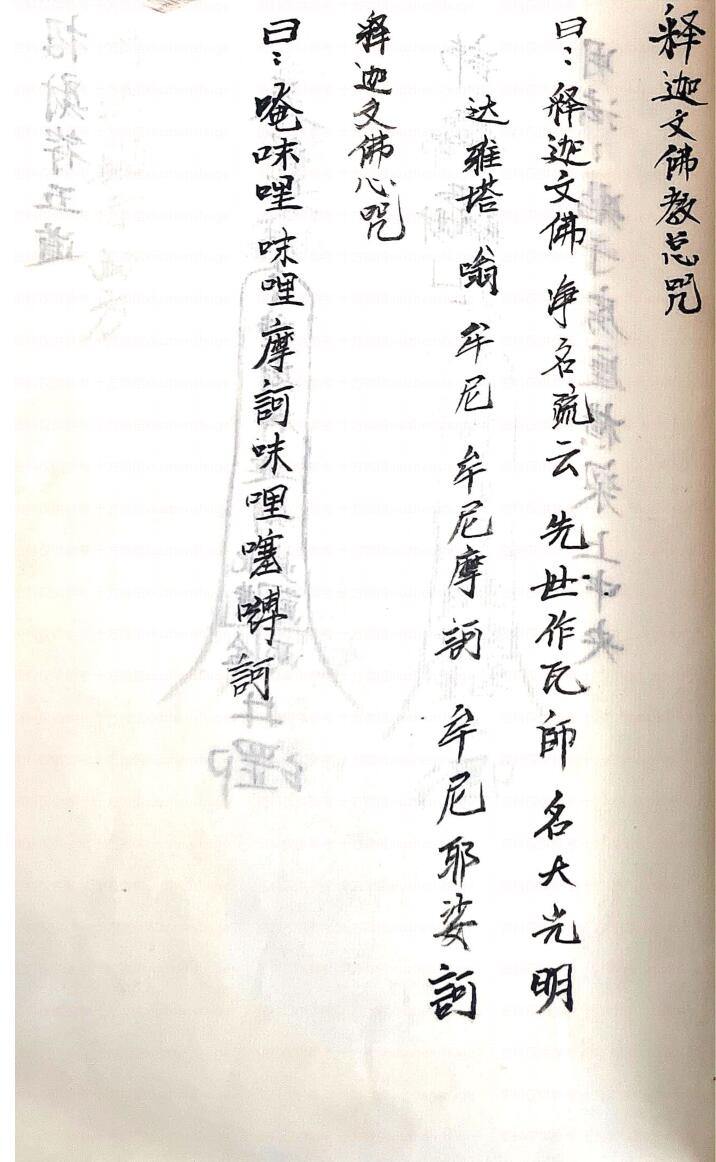 释迦文佛教总咒
曰：释迦文佛 净名疏云 先世作瓦师 名大光明
达雅塔 嗡 牟尼 牟尼摩 訶 牟尼耶娑訶
释迦文佛心咒
曰：唵味哩 味哩摩訶味哩噻嚩訶
招财符五道